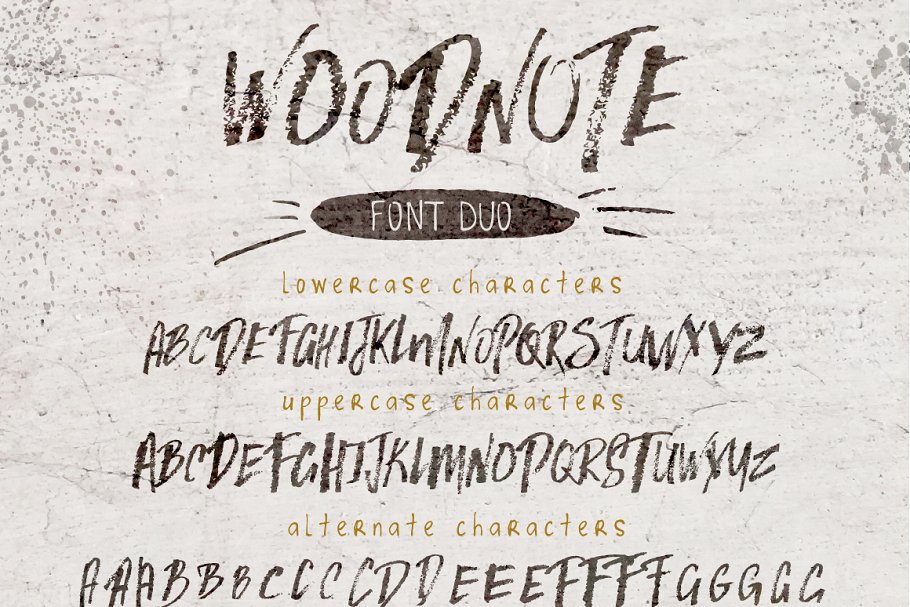 WOODNOTE
FONT DUO
lowercase characters
ABCDEFGHIJKLMNOPQRSTUVWXYZ
uppercase characters
ABCDEFGHIJKLMNOPQRSTUVWXYZ
alternate characters
AAABBBCCCCDDDEEEFFFFFGGGGG